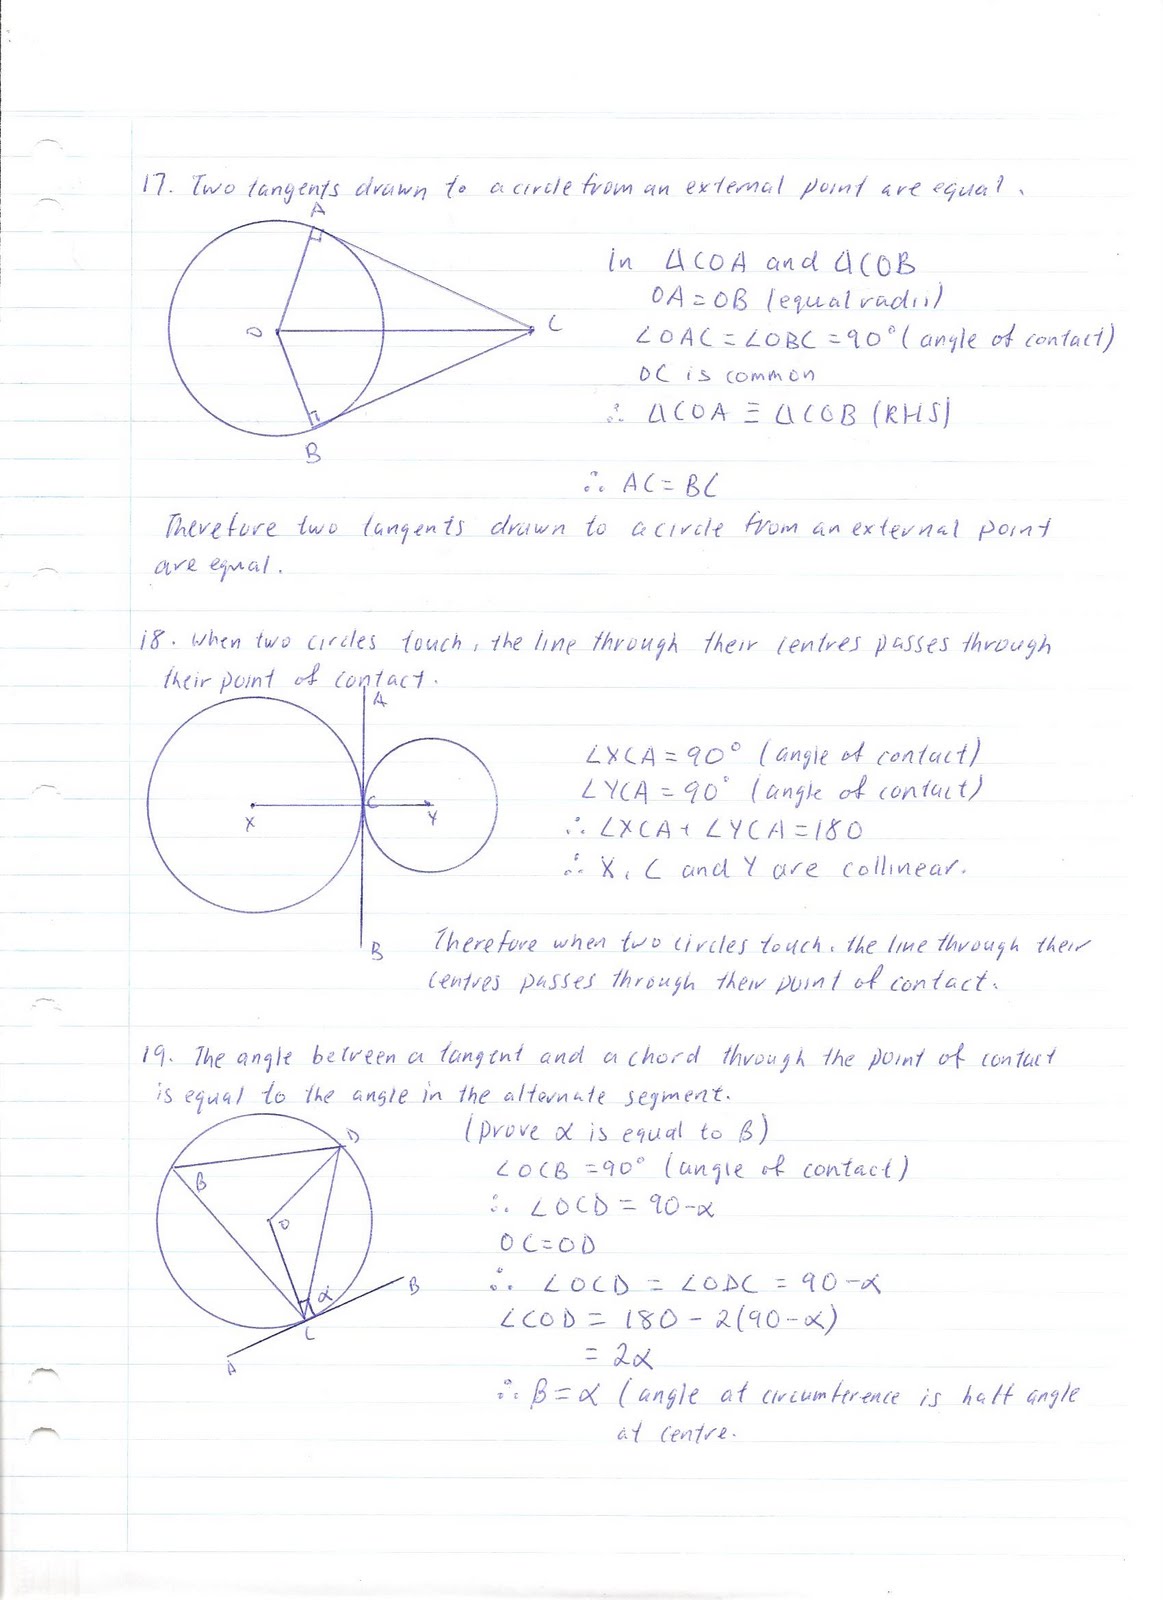 17. Two tangents drawn to a circle from an external point are equal.
A
O
C
B
In ΔCOA and ΔCOB
OA = OB (equal radii)
∠OAC = ∠OBC = 90° (angle of contact)
OC is common
∴ ΔCOA ≡ ΔCOB (RHS)
∴ AC = BC
Therefore two tangents drawn to a circle from an external point
are equal.
18. When two circles touch, the line through their centres passes through
their point of contact.
A
X
C
Y
B
∠XCA = 90° (angle of contact)
∠YCA = 90° (angle of contact)
∴ ∠XCA + ∠YCA = 180
∴ X, C and Y are collinear.
Therefore when two circles touch, the line through their
centres passes through their point of contact.
19. The angle between a tangent and a chord through the point of contact
is equal to the angle in the alternate segment.
D
β
O
α
B
C
A
(prove α is equal to β)
∠OCB = 90° (angle of contact)
∴ ∠OCD = 90-α
OC = OD
∴ ∠OCD = ∠ODC = 90-α
∠COD = 180 - 2(90-α)
= 2α
∴ β = α (angle at circumference is half angle
at centre.